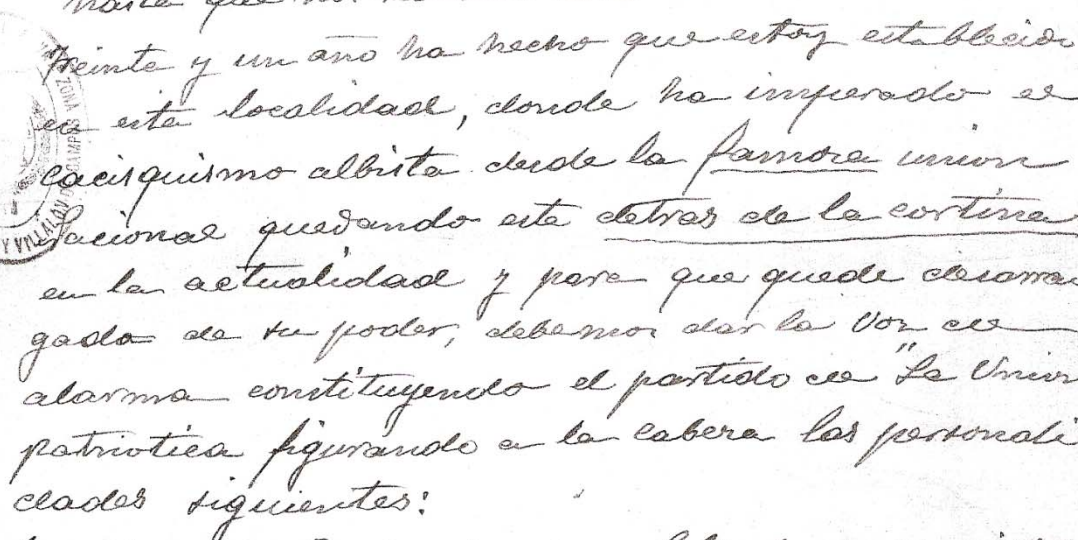 hasta que nos
treinta y un año ha hecho que estoy establecido
en esta localidad, donde ha imperado el
cacisquismo albista desde la famosa union
Nacional quedando este detras de la cortina
en la actualidad y para que quede desarrai
gado de su poder, debemos dar la voz de
alarma constituyendo el partido de "La Union
patriotica figurando a la cabeza las personali
dades siguientes:
ZONA
CAMPOS
Y VILLALON DE